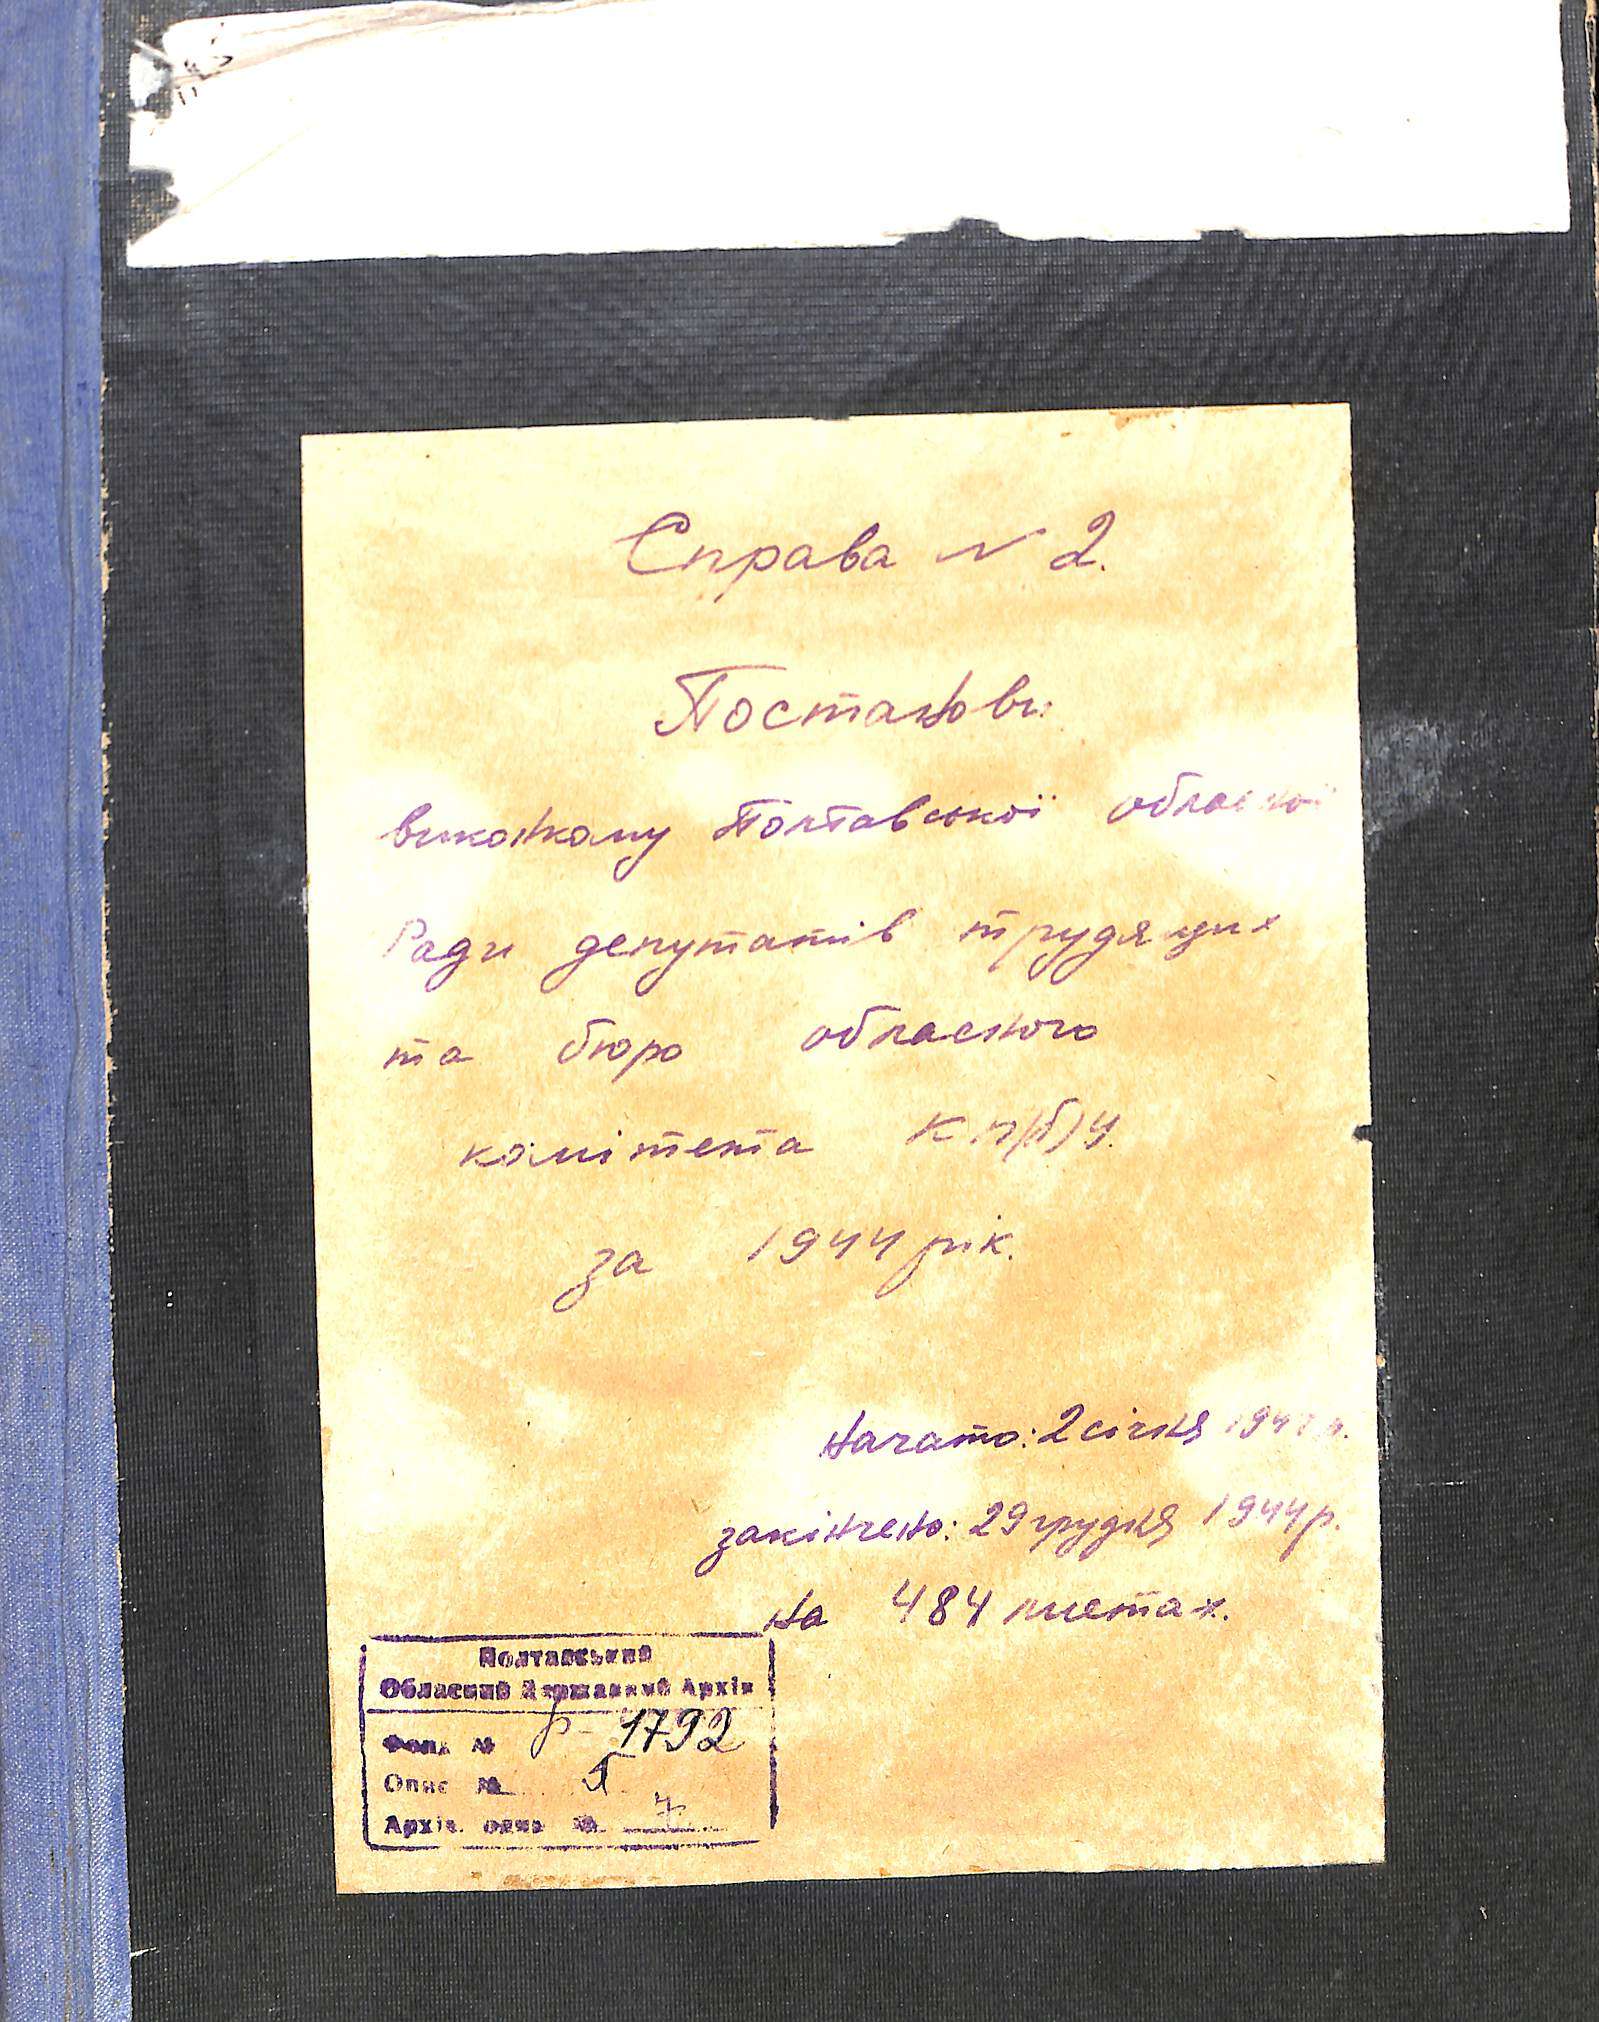 Справа № 2.
Постанови
виконкому Полтавської обласної
Ради депутатів трудящих
та бюро обласного
комітета КП(б)У.
за 1944 рік.
начато: 2 січня 1944 р.
закінчено: 29 грудня 1944 р.
на 484 листах.
Полтавський
Обласний Державний Архів
Фонд № р-1792
Опис № 1
Архів. один №